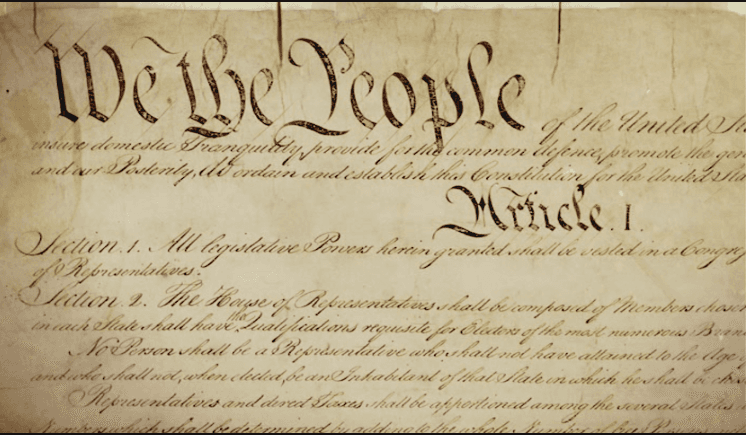 We the People of the United Sta
insure domestic Tranquility, provide for the common defence, promote the gen
and our Posterity, do ordain and establish this Constitution for the United Sta
Article. I.
Section. 1. All legislative Powers herein granted shall be vested in a Congre
of Representatives.
Section. 2. The House of Representatives shall be composed of Members chosen
in each State shall have the Qualifications requisite for Electors of the most numerous Bran
No Person shall be a Representative who shall not have attained to the Age
and who shall not, when elected, be an Inhabitant of that State in which he shall be chos
Representatives and direct Taxes shall be apportioned among the several States
Numbers which shall be determined by adding to the whole Number of free Pe